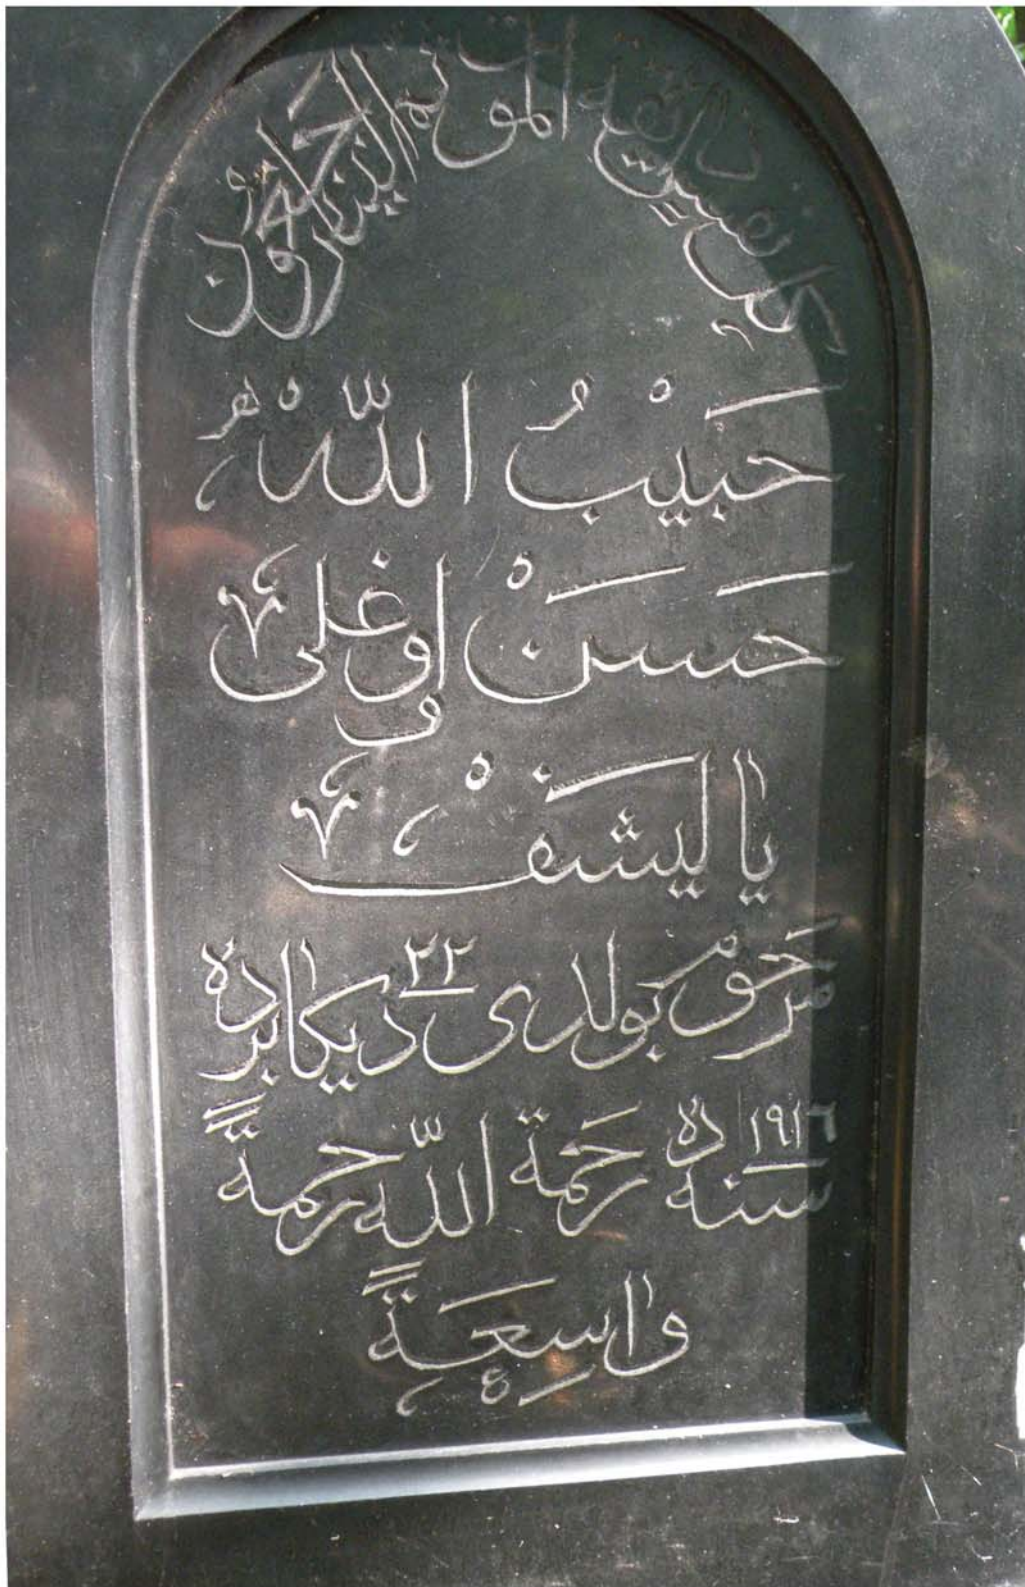 كل نفس ذائقة الموت ثم الينا ترجعون
حَبِيْبُ اللّٰهْ
حَسَنْ اوغلی
يا ليشَفْ
مَرحوْم بولدی ٢٢ ديكابرده
١٩١٦ سنه ده رَحمة اللّه رحمةً
واسِعَةً